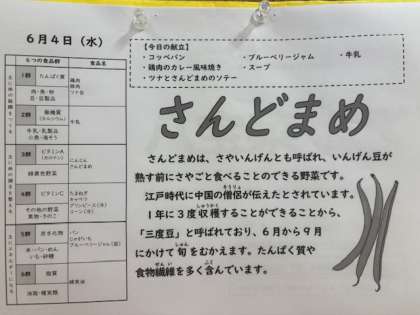 6月4日（水）
６つの食品群
食品名
1群
たんぱく質
肉・魚・卵
豆・豆製品
鶏肉
豚肉
ツナ缶
2群
無機質
（カルシウム）
牛乳・乳製品
小魚・海そう
牛乳
3群
ビタミンA
（カロテン）
緑黄色野菜
にんじん
さんどまめ
4群
ビタミンC
その他の野菜
果物・きのこ
たまねぎ
キャベツ
コーン（冷）
5群
炭水化物
米・パン・めん
いも・砂糖
パン
じゃがいも
ブルーベリージャム（袋）
6群
脂質
油脂・種実類
【今日の献立】
・コッペパン
・ブルーベリージャム
・牛乳
・鶏肉のカレー風味焼き
・スープ
・ツナとさんどまめのソテー
さんどまめ
さんどまめは、さやいんげんとも呼ばれ、いんげん豆が
熟す前にさやごと食べることのできる野菜です。
江戸時代に中国の僧侶が伝えたとされています。
１年に３度収穫することができることから、
「三度豆」と呼ばれており、６月から９月
にかけて旬をむかえます。たんぱく質や
食物繊維を多く含んでいます。